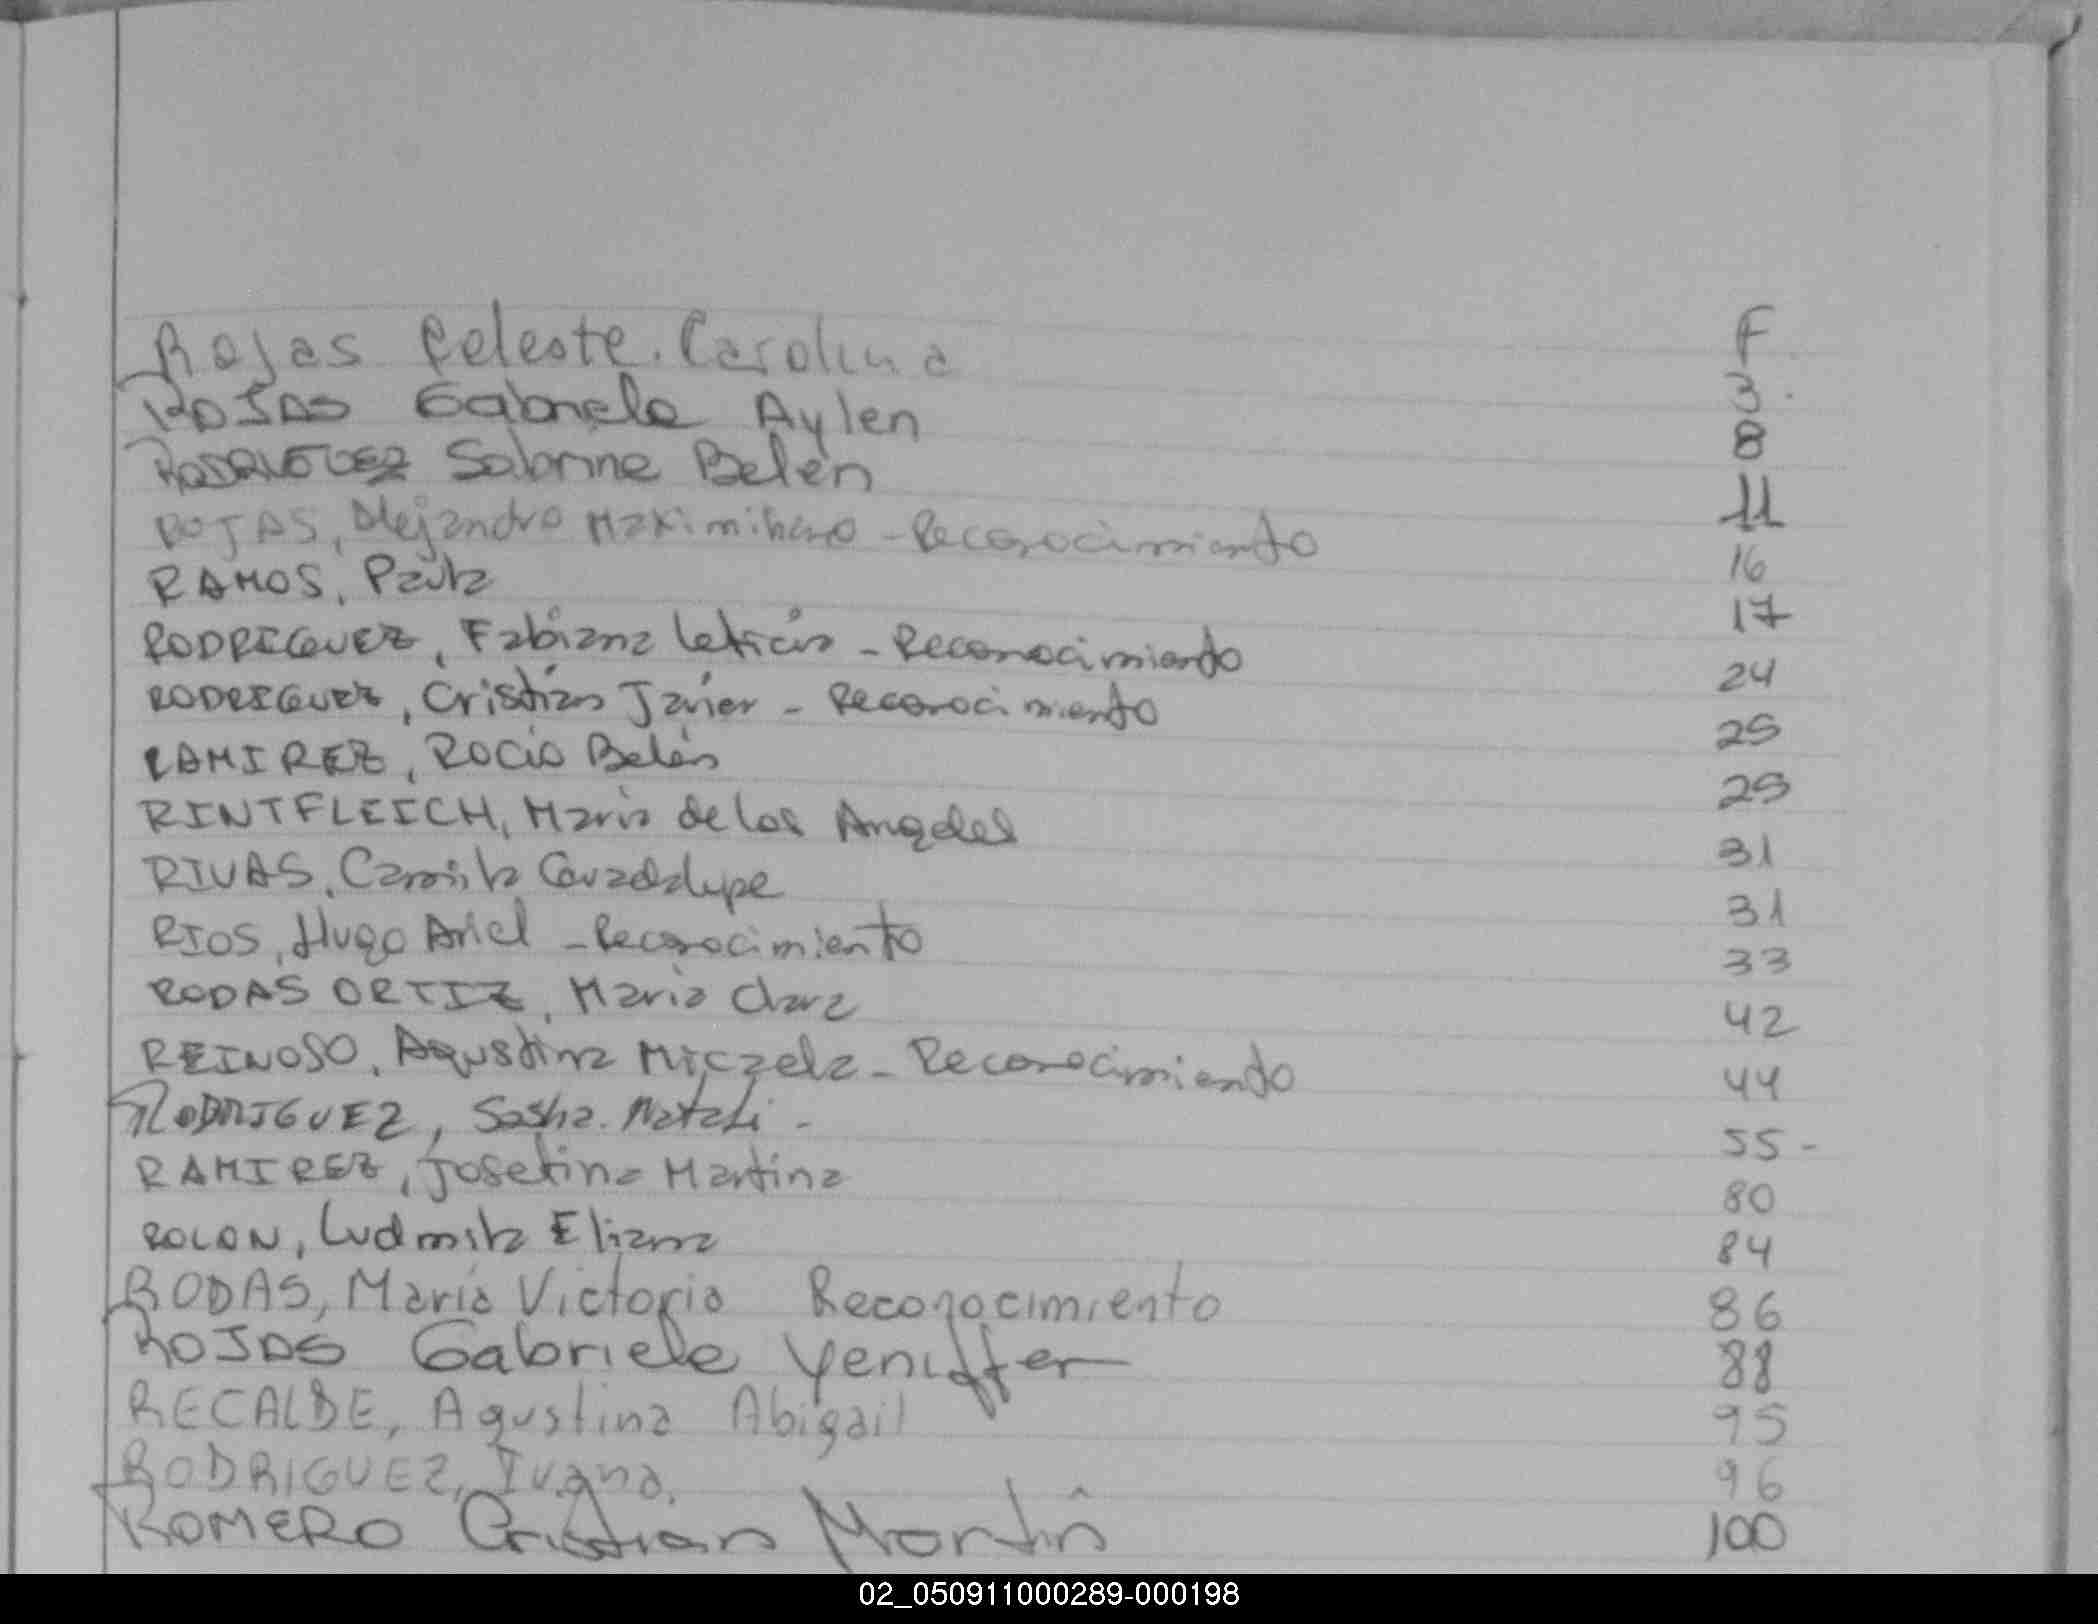 Rojas Celeste. Carolina F
ROJAS Gabriela Aylen 3.
RODRIGUEZ Sabrina Belén 8
ROJAS, Alejandro Maximiliano - Reconocimiento 11
RAMOS, Paula 16
RODRIGUEZ, Fabiana Leticia - Reconocimiento 17
RODRIGUEZ, Cristián Javier - Reconocimiento 24
RAMIREZ, Rocío Belén 25
RINTFLEICH, María de los Angeles 29
RIVAS, Camila Guadalupe 31
RIOS, Hugo Ariel - Reconocimiento 31
RODAS ORTIZ, María Clara 33
REINOSO, Agustina Micaela - Reconocimiento 42
RODRIGUEZ, Sasha. Natali - 44
RAMIREZ, Josefina Martina 55 -
ROLON, Ludmila Eliana 80
RODAS, María Victoria Reconocimiento 84
ROJAS Gabriela Yeniffer 86
RECALDE, Agustina Abigail 88
RODRIGUEZ, Ivana. 95
ROMERO Cristian Martín 96
100
02_050911000289-000198